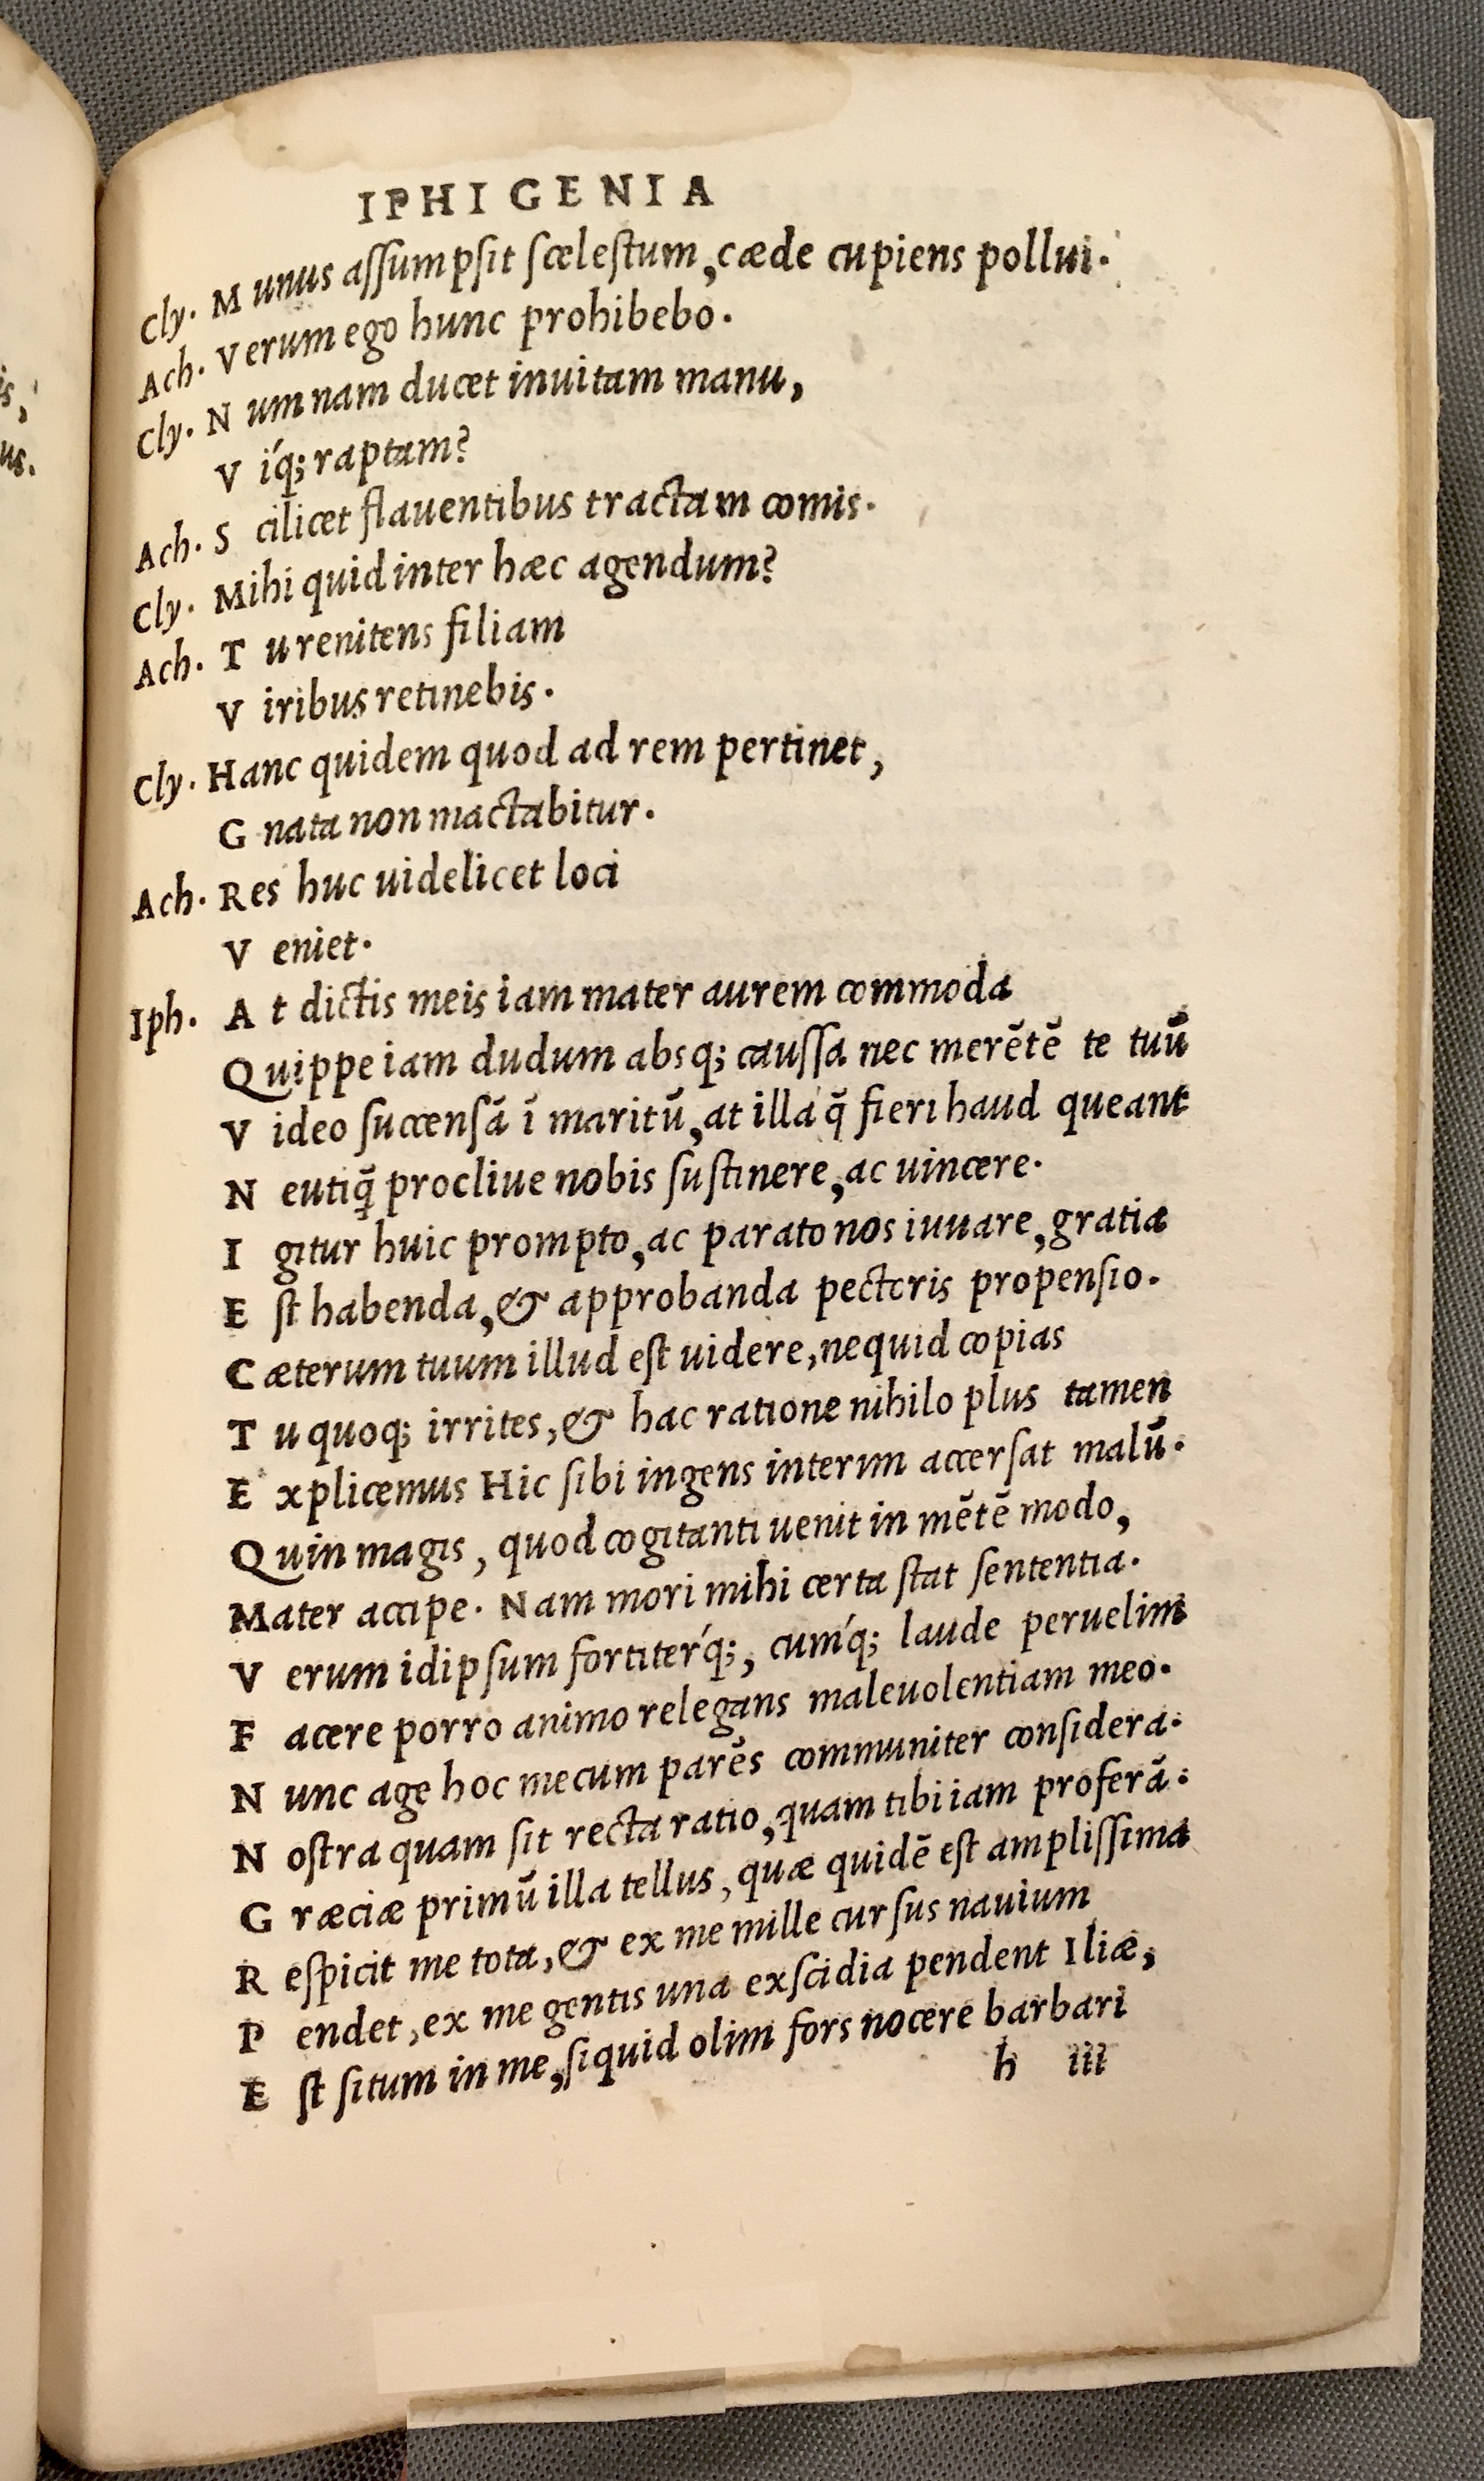 is,
us.
IPHIGENIA
Cly. Munus assumpsit scelestum, cæde cupiens pollui.
Ach. Verum ego hunc prohibebo.
Cly. Num nam ducet inuitam manu,
Víq; raptam?
Ach. Scilicet flauentibus tractam comis.
Cly. Mihi quid inter hæc agendum?
Ach. Tu renitens filiam
Viribus retinebis.
Cly. Hanc quidem quod ad rem pertinet,
Gnata non mactabitur.
Ach. Res huc uidelicet loci
Veniet.
Iph. At dictis meis iam mater aurem commoda
Quippe iam dudum absq; caussa nec merētē te tuū
Video succensā ī maritū, at illa q̄ fieri haud queant
Neutiq̄ procliue nobis sustinere, ac uincere.
Igitur huic prompto, ac parato nos iuuare, gratia
Est habenda, & approbanda pectoris propensio.
Cæterum tuum illud est uidere, nequid copias
Tu quoq; irrites, & hac ratione nihilo plus tamen
Explicemus Hic sibi ingens interim accersat malū.
Quin magis, quod cogitanti uenit in mētē modo,
Mater accipe. Nam mori mihi certa stat sententia.
Verum id ipsum fortiteŕq;, cuḿq; laude peruelim
Facere porro animo relegans maleuolentiam meo.
Nunc age hoc mecum parēs communiter considera.
Nostra quam sit recta ratio, quam tibi iam proferā.
Græciæ primū illa tellus, quæ quidē est amplissima
Respicit me tota, & ex me mille cursus nauium
Pendet, ex me gentis una exscidia pendent Iliæ,
Est situm in me, siquid olim fors nocere barbari
h iii